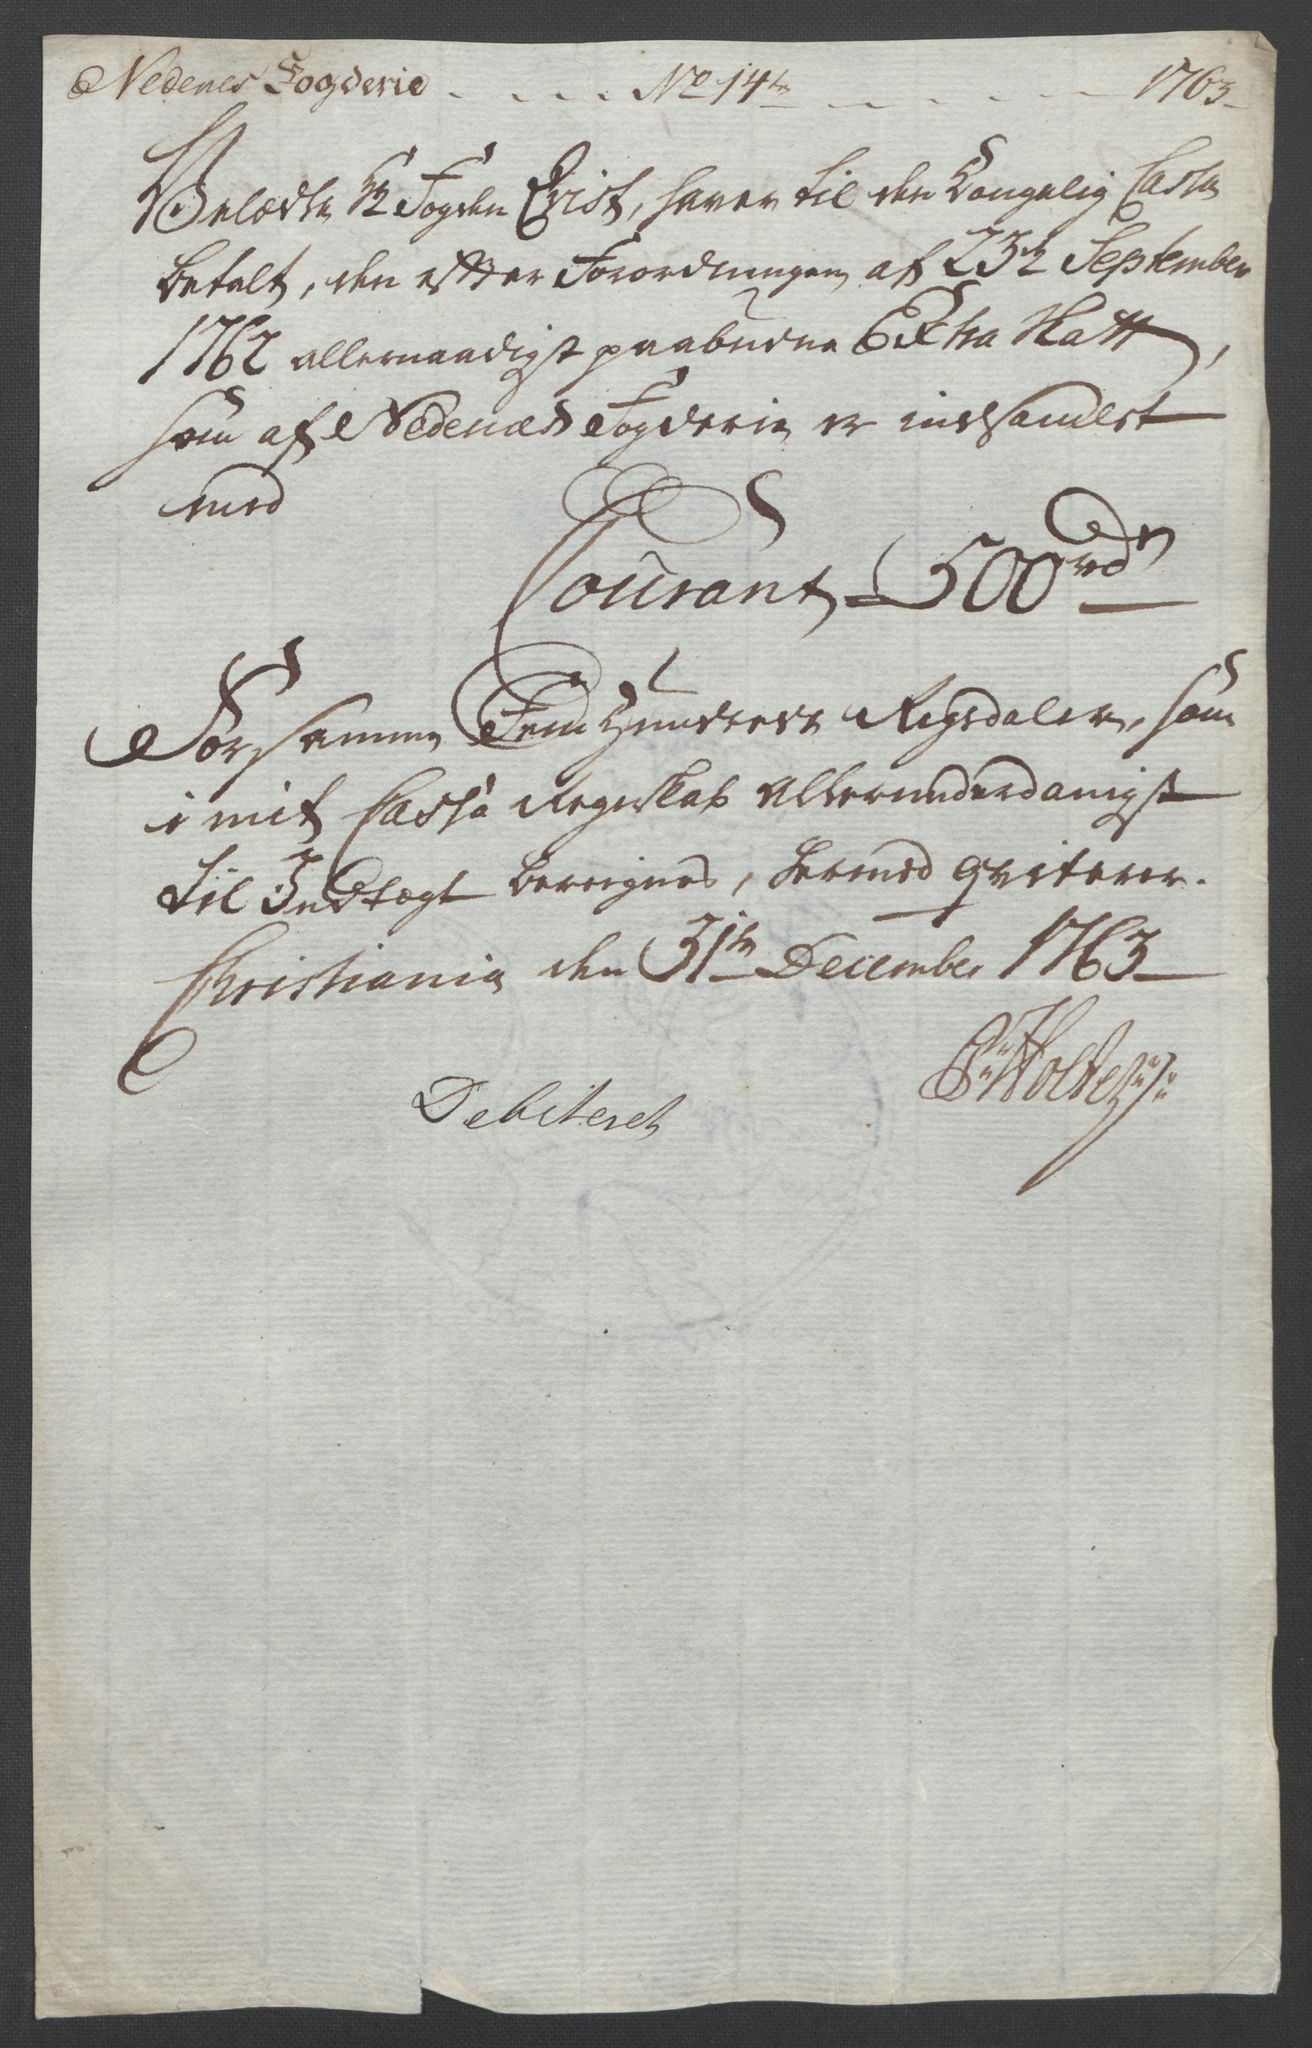 Nedenes Fogderie - - - - No 14de - - - - 1763
Velædle Hr Fogden Crist, haver til den Kongelig Cassa
betalt, den efter Forordningen af 23de September
1762 allernaadigst paabudne Extra Skatt,
som af Nedenæs Fogderie er indsamlet
med
Courant 500 rdr
Forsamme Fem Hundrede Rigsdaler, som
i mit Cassa Regnskab allerunderdanigst
til Indtægt beregnes, hermed qviterer.
Christiania den 31te December 1763
Holte
Debiteret